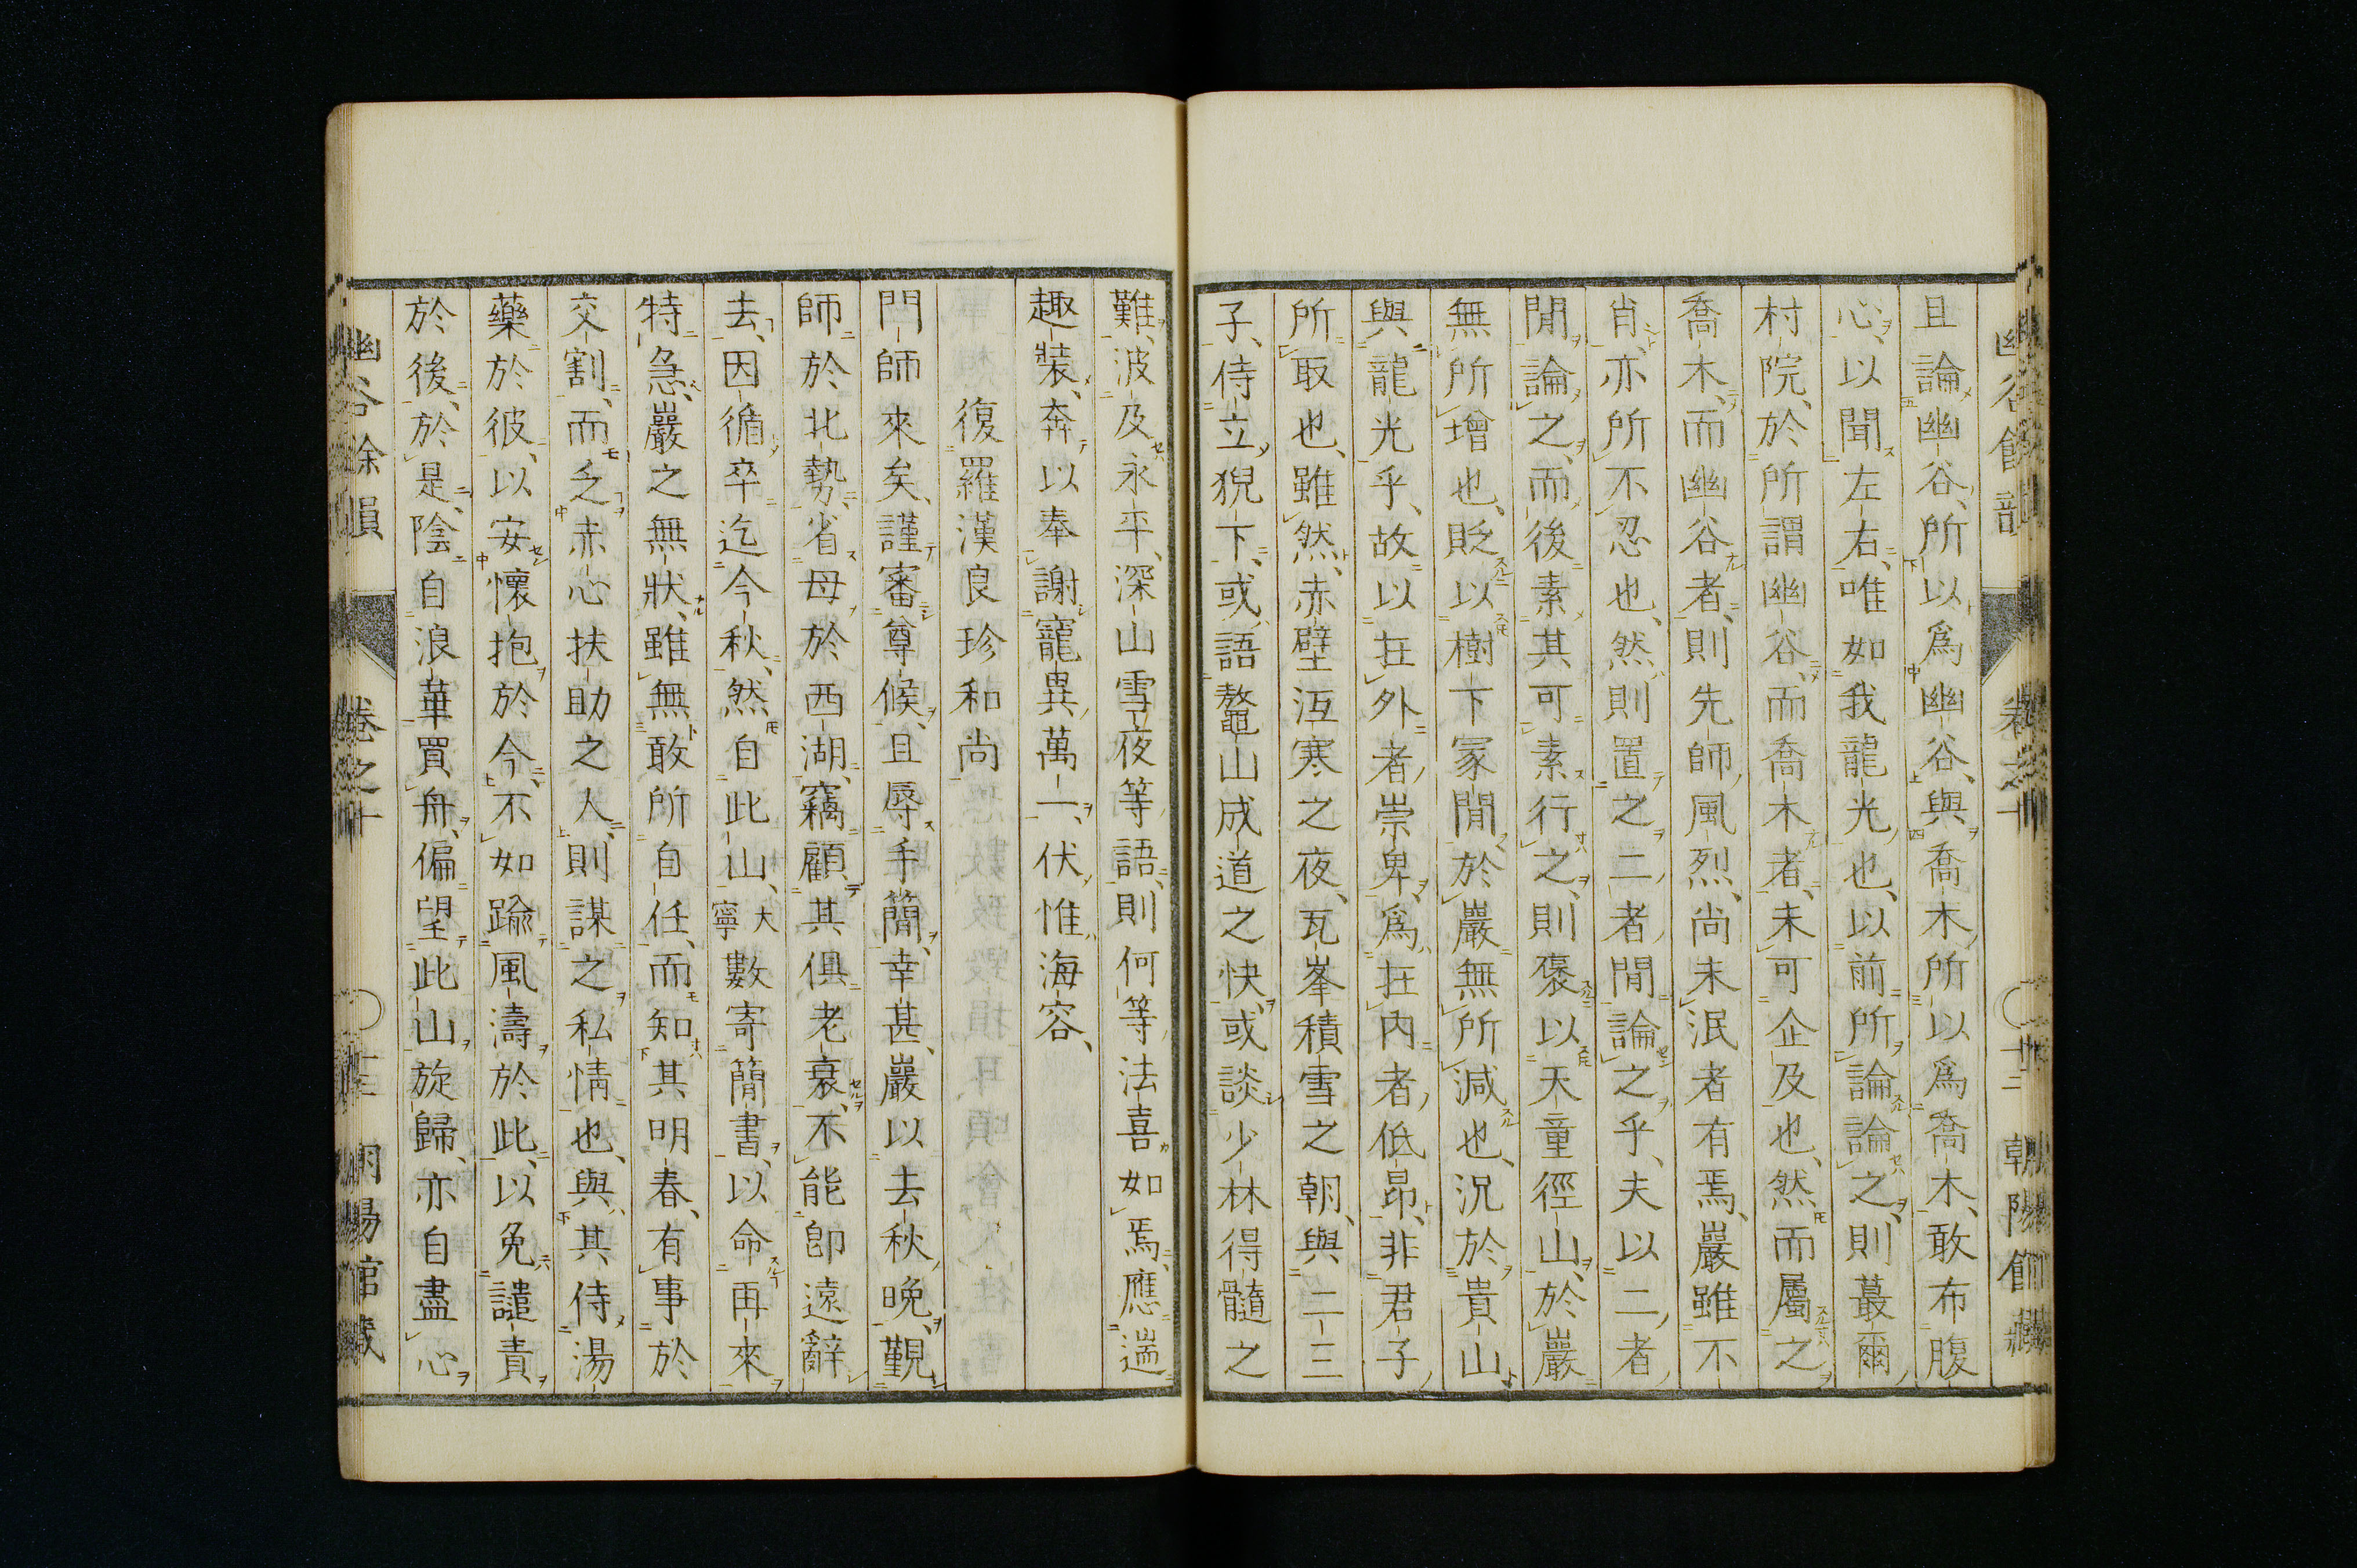 且論幽谷、所以爲幽谷、與喬木、所以爲喬木、敢布腹
心、以聞左右、唯如我龍光也、以前所論論之、則蕞爾
村院、於所謂幽谷、而喬木者、未可企及也、然而屬之
喬木、而幽谷者、則先師風烈、尚未泯者有焉、嚴雖不
肖、亦所不忍也、然則置之二者閒論之乎、夫以二者
閒論之、而後素其可素行之、則褒以天童徑山、於嚴
無所增也、貶以樹下冢閒、於嚴無所減也、況於貴山
與龍光乎、故以在外者、崇卑、爲在內者、低昂、非君子
所取也、雖然、赤壁沍寒之夜、瓦峯積雪之朝、與二三
子、侍立猊下、或語鼇山成道之快、或談少林得髓之
難、波及永平、深山雪夜等語、則何等法喜如焉、應遄
趣裝、奔以奉謝寵異萬一、伏惟海容、
復羅漢良珍和尚
門師來矣、謹審尊候、且辱手簡、幸甚、嚴以去秋晚、覲
師於北勢、省母於西湖、竊顧其俱老衰、不能卽遠辭
去、因循卒迄今秋、然自此山、大寧數寄簡書、以命再來
特急、嚴之無狀、雖無敢所自任、而知其明春、有事於
交割、而乏赤心扶助之人、則謀之私情也、與其侍湯
藥於彼、以安懷抱於今、不如踰風濤於此、以免譴責
於後、於是、陰自浪華買舟、偏望此山旋歸、亦自盡心
幽谷餘韻 卷之十 〇十二 朝陽館藏